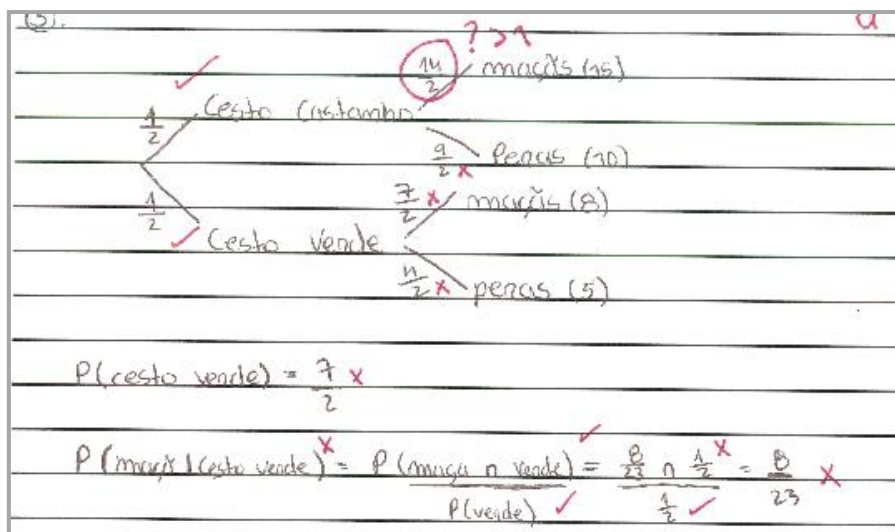 (3).
? >1
14/2 maçãs (15)
1/2 Cesto Castanho
9/2 x Peras (10)
7/2 x maçãs (8)
1/2 Cesto verde
4/2 x peras (5)
P(cesto verde) = 7/2 x
P(maçã | Cesto verde) x = P(maçã ∩ verde) / P(verde) = 8/23 ∩ 1/2 x / 1/2 = 8/23 x